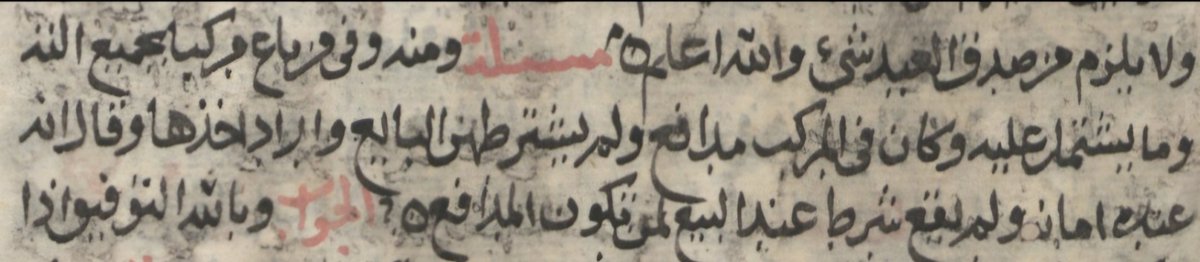 ولا يلزم من صدق العبد شئ والله اعلم مسئلة ومنه وفي من باع مركبا بجميع الته
وما يشتمل عليه وكان في المركب مدافع ولم يشترطهن البايع واراد اخذها وقال انه
عنده امانه ولم يقع شرط عند البيع لمن تكون المدافع الجواب وبالله التوفيق اذا